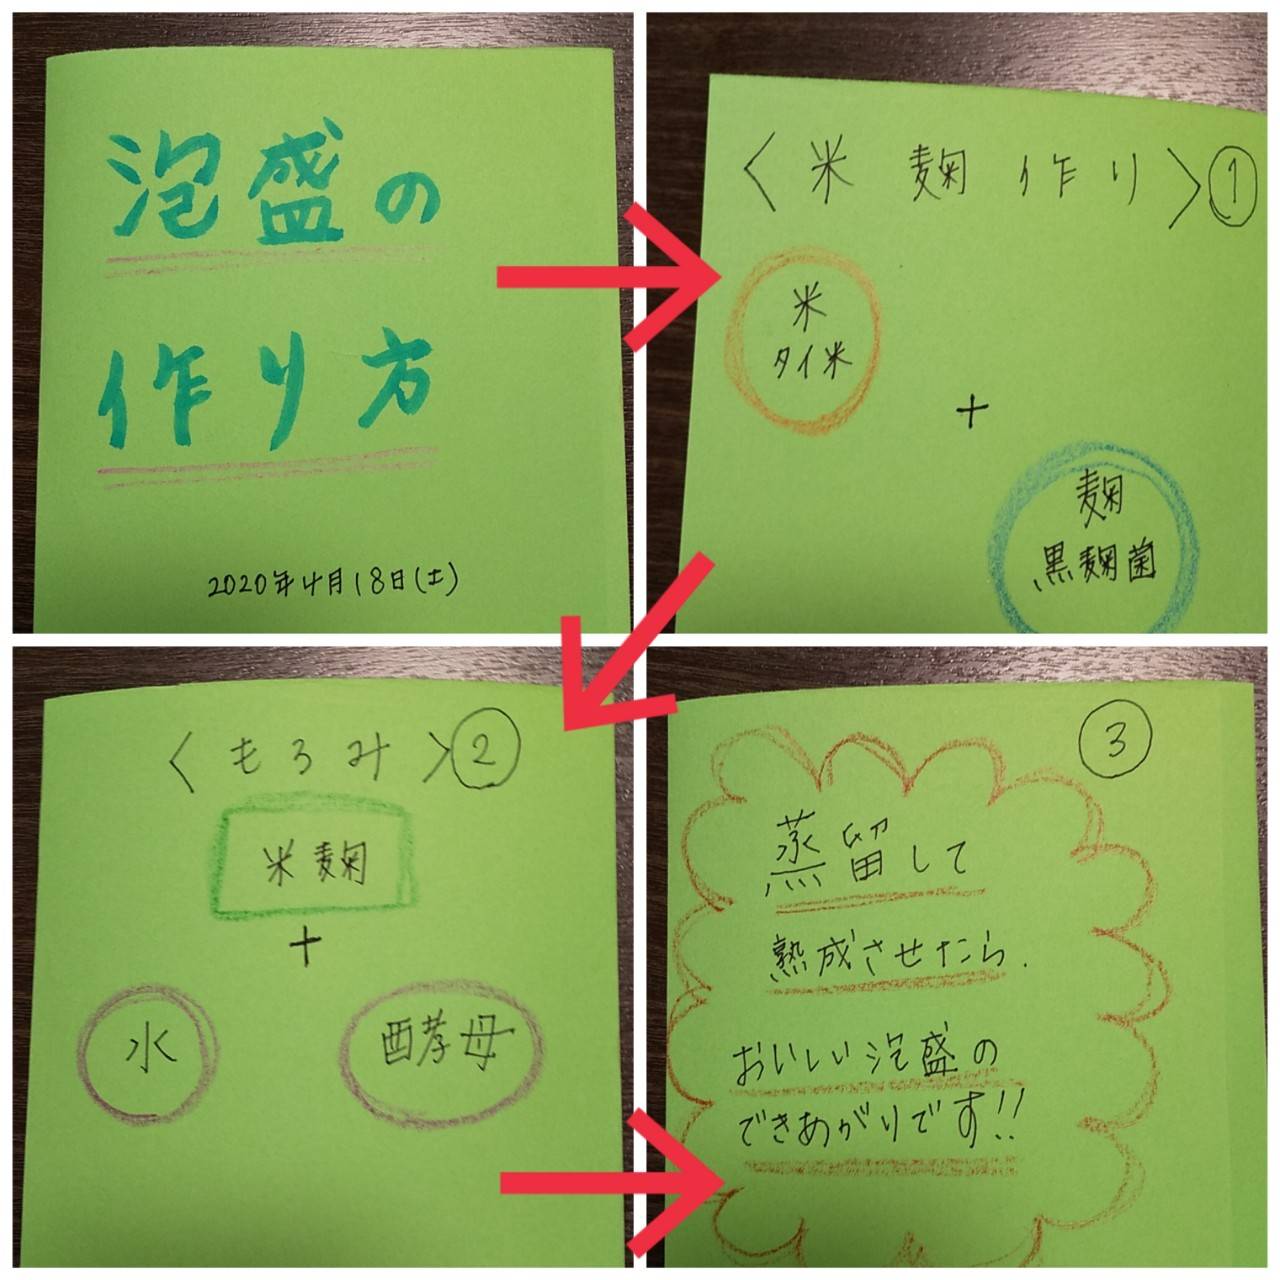 泡盛の
作り方
2020年4月18日(土)
〈米麹作り〉①
米
タイ米
+
麹
黒麹菌
〈もろみ〉②
米麹
+
水
酵母
③
蒸留して
熟成させたら.
おいしい泡盛の
できあがりです!!